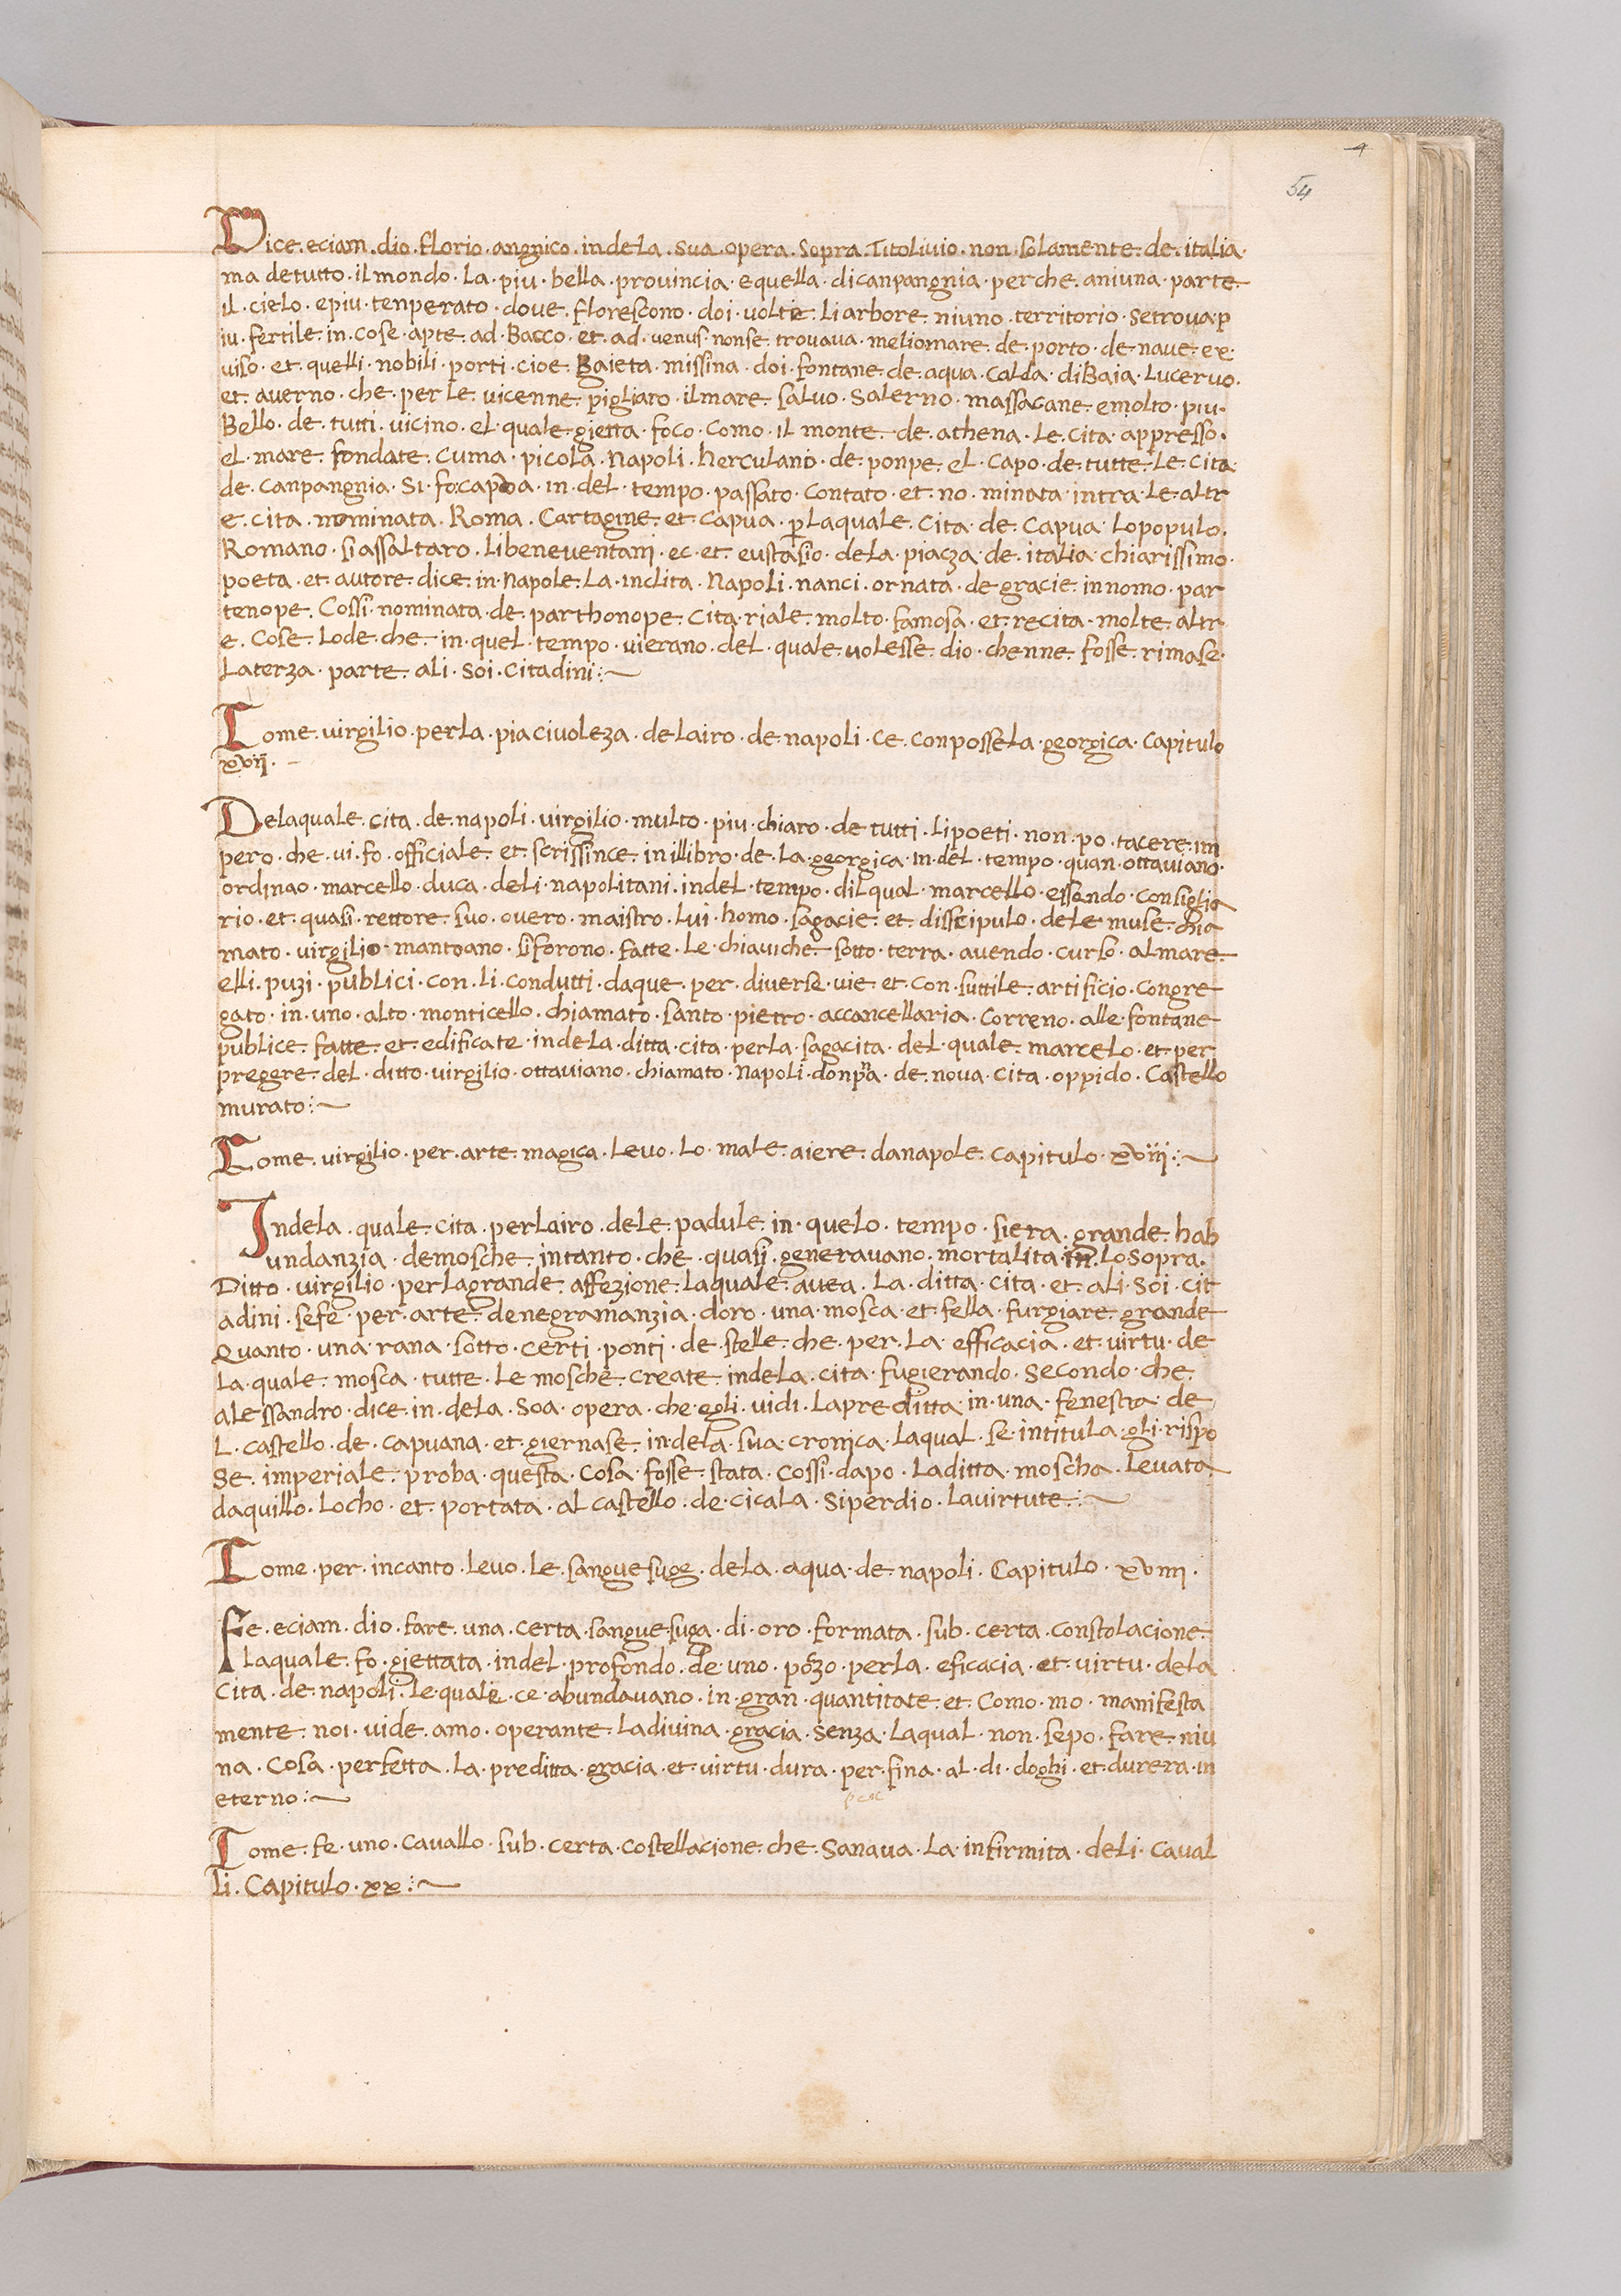 4
54
Dice · eciam · dio · florio · angnico · indela · sua · opera · sopra · Titoliuio · non · solamente · de · italia ·
ma detutto · il mondo · La · piu · bella · prouincia · equella · dicanpangnia · perche · aniuna · parte
il · cielo · epiu · tenperato · dove · florescono · doi · volte · Li arbore · niuno · territorio · setroua · p
iu · fertile · in · cose · apte · ad · Bacco · et · ad · venus · nonse · trovava · meliomare · de · porto · de · naue · ex
uiso · et · quelli · nobili · porti · cioe · Baieta · missina · doi · fontane · de · aqua · calda · diBaia · Lucervo ·
et · averno · che · per Le · vicenne · pigliaro · ilmare · salvo · Salerno · massacane · emolto · piu ·
Bello · de · tutti · vicino · el · quale · gietta · foco · como · il monte · de · athena · Le · cita · appresso ·
el · mare · fondate · cuma · picola · napoli · herculano · de · ponpe · el · capo · de · tutte · Le · cita
de · canpangnia · Si · fo · capoa · in · del · tempo · passato · contato · et · no · minata · intra · Le · altr
e · cita · nominata · Roma · Cartagine · et · capua · p Laquale · cita · de · capua · Lo popolo ·
Romano · si assaltaro · Li beneventani · ec · et · eustasio · dela · piacza · de · italia · chiarissimo ·
poeta · et · autore · dice · in · napole · La · inclita · napoli · nanci · ornata · de · gracie · in nomo · par
tenope · Cossi · nominata · de · parthonope · cita · riale · molto · famosa · et · recita · molte · altr
e · cose · Lode · che · in · quel · tempo · vierano · del · quale · volesse · dio · chenne · fosse · rimase ·
Laterza · parte · ali · soi · citadini :~
Come · virgilio · perla · piacivoleza · delairo · de · napoli · ce · conposse La · georgica · capitulo
xvii ·
Delaquale · cita · de · napoli · virgilio · multo · piu · chiaro · de · tutti · Lipoeti · non · po · tacere · im
pero · che · vi · fo · officiale · et · scrissince · in illibro · de · La · georgica · in · del · tempo · quan · ottaviano ·
ordinao · marcello · duca · deli · napolitani · indel · tempo · dilqual · marcello · essendo · consiglia
rio · et · quasi · rettore · suo · overo · maistro · Lui · homo · sagacie · et · disscipulo · dele muse · chia
mato · virgilio · mantoano · siforono · fatte · Le · chiaviche · sotto · terra · avendo · curso · almare
elli · puzi · publici · con · Li · condutti · daque · per · diverse · vie · et · con · suttile · artificio · congre
gato · in · uno · alto · monticello · chiamato · santo · pietro · accancellaria · correno · alle · fontane
publice · fatte · et · edificate · indela · ditta · cita · perla · sagacita · del · quale · marcelo · et · per
pregere · del · ditto · virgilio · ottaviano · chiamato · napoli · donpna · de · nova · cita · oppido · castello
murato :~
Come · virgilio · per · arte · magica · Levo · Lo · male · aiere · danapole · capitulo · xviii :~
Indela · quale · cita · perlairo · dele · padule · in · quelo · tempo · siera · grande · hab
undanzia · demosche · intanto · che · quasi · generavano · mortalita · in · Lo sopra ·
Ditto · virgilio · perlagrande · affezione · Laquale · avea · La · ditta · cita · et · ali · soi · cit
adini · sefe · per · arte · denegramanzia · doro · una · mosca · et · fella · furgiare · grande
Quanto · una · rana · sotto · certi · ponti · de · stelle · che · per · La · efficacia · et · virtu · de
La · quale · mosca · tutte · Le mosche · create · indela · cita · fugierando · secondo · che ·
alessandro · dice · in · dela · soa · opera · che · egli · vidi · La preditta · in · una · fenestra · de
L · castello · de · capuana · et · giernase · in · dela · sua · cronica · Laqual · se · intitula · gli · rispo
se · imperiale · proba · questa · cosa · fosse · stata · cossi · dapo · Laditta · moscha · Levata
daquillo · Locho · et · portata · al castello · de · cicala · siperdio · Lavirtute :~
Come · per · incanto · Levo · Le · sanguesuge · dela · aqua · de · napoli · Capitulo · xviiii ·
Fe · eciam · dio · fare · una · certa · sanguesuga · di · oro · formata · sub · certa · constolacione ·
Laquale · fo · giettata · indel · profondo · de uno · pozo · perla · eficacia · et · virtu · dela
cita · de · napoli · Le quale · ce · abundavano · in · gran · quantitate · et · como · mo · manifesta
mente · noi · vide · amo · operante · Ladivina · gracia · senza · Laqual · non · sepo · fare · niu
na · cosa · perfetta · La · preditta · gracia · et · virtu · dura · per · fina · al · di · doghi · et · durera · in
eterno :~
Come · fe · uno · cavallo · sub · certa · costellacione · che · sanava · La · infirmita · deli · caval
Li · Capitulo · xx :~